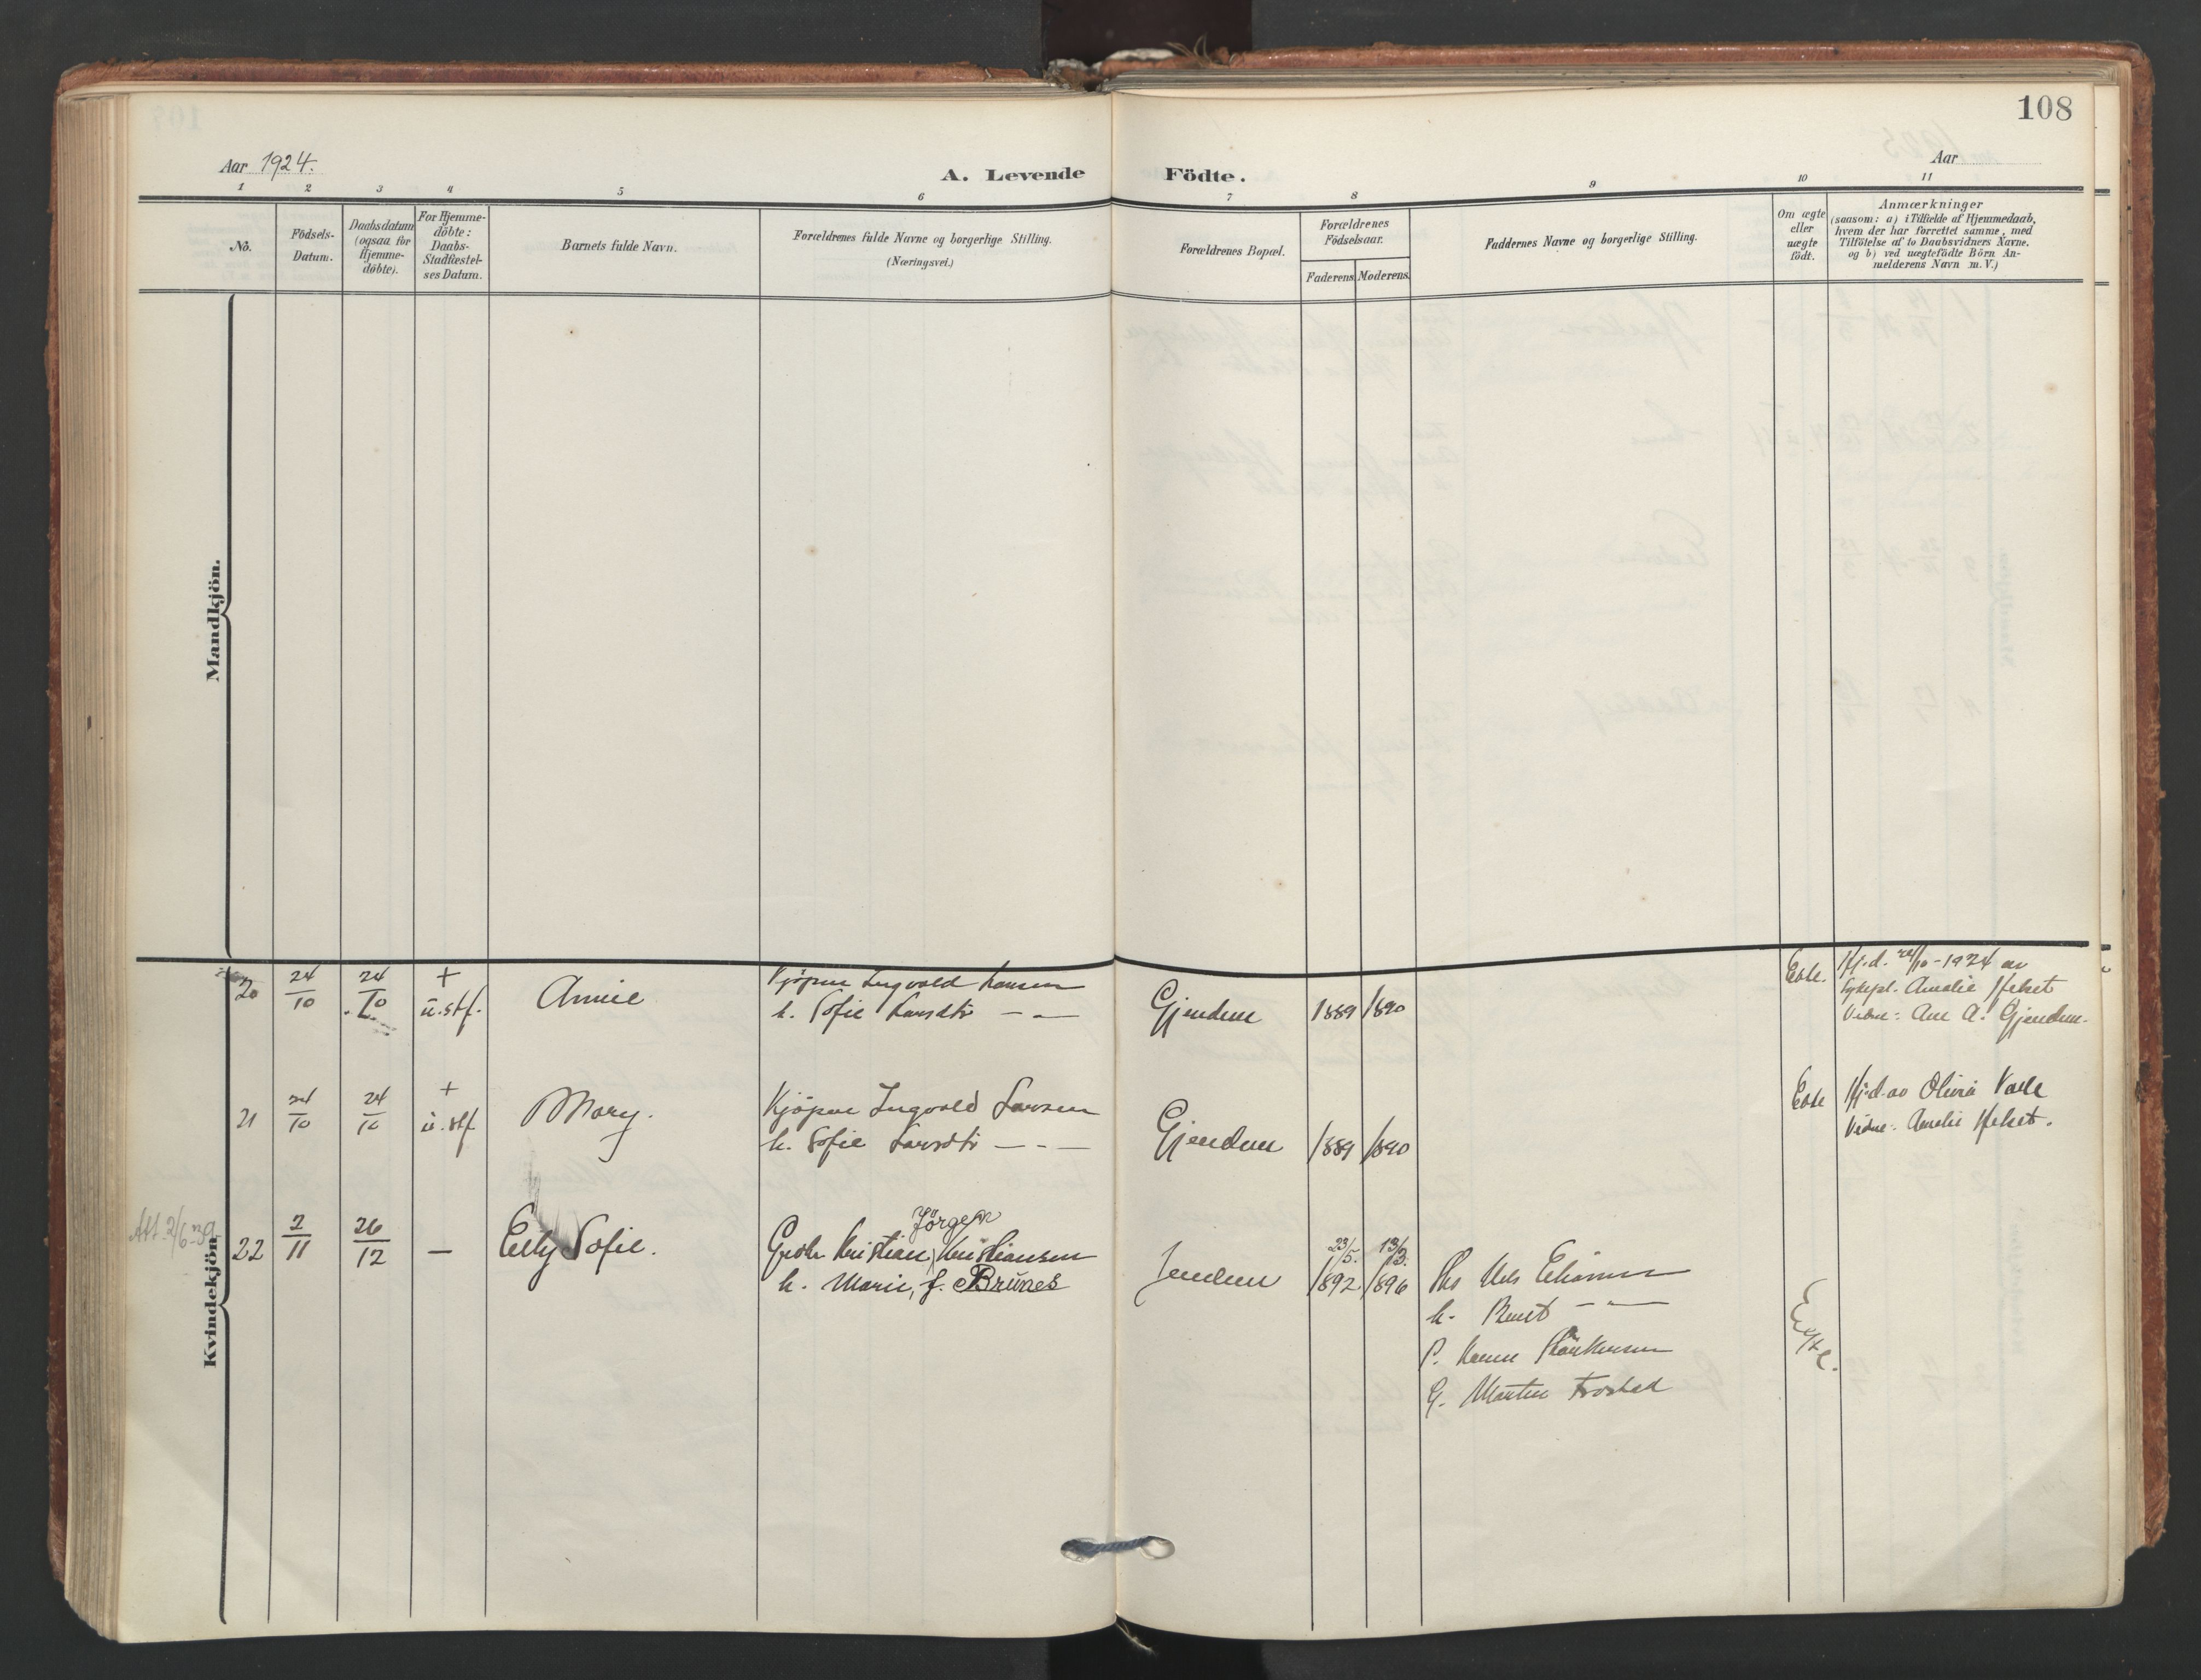 108
Aar 1924.
A. Levende Födte.
Aar
1 2 3 4 5 6 7 8 9 10 11
No.
Födsels-
Datum.
Daabsdatum
(ogsaa for
Hjemme-
döbte).
For Hjemme-
döbte:
Daabs-
Stadfæstel-
ses Datum.
Barnets fulde Navn.
Forældrenes fulde Navne og borgerlige Stilling.
(Næringsvei.)
Forældrenes Bopæl.
Forældrenes
Födselsaar.
Faderens. Moderens.
Faddernes Navne og borgerlige Stilling.
Om ægte
eller
uægte
födt.
Anmærkninger
(saasom: a) i Tilfælde af Hjemmedaab,
hvem der har forrettet samme, med
Tilföielse af to Daabsvidners Navne.
og b) ved uægtefödte Börn An-
melderens Navn m. V.)
Mandkjön.
Kvindekjön.
20 24/10 24/10 + u. stf. Annie
Kjöpm Ingvald Larsen
h. Sofie Larsdtr — —
Gjendem 1889 1890
Ekte.
Hj.d. 24/10-1924 av
Sykepl. Amalie Helset
Vidne: Ane A. Gjendem.
21 24/10 24/10 + u. stf. Mary.
Kjöpm Ingvald Larsen
h. Sofie Larsdtr — - —
Gjendem 1889 1890
Ekte
Hj.d. av Olivia Valle
Vidne: Amalie Helset.
Att. 2/6-39
22 2/11 26/12 — Elly Sofie.
Jörgen
Kristian Kristiansen
h. Marie, f. Brunes
Jendem
23/5. 1892 13/3. 1896
h. Beret — —
P.
G. Martin Frostad
Egte.